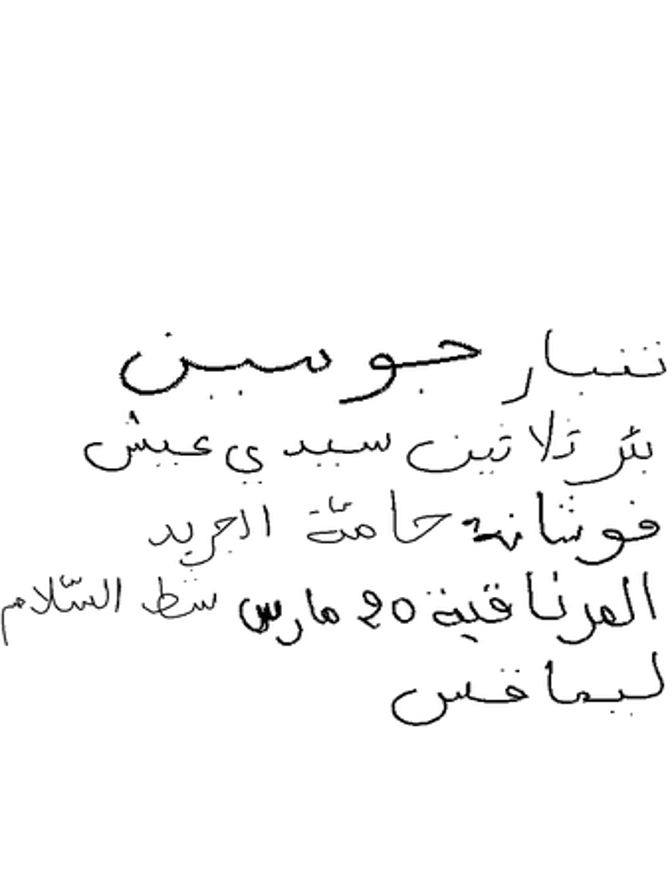 تيبار جوسين
بئر ثلاثين سيدي عيش
فوشانة حامّة الجريد
المرناقية 20 مارس شط السّلام
ليماقس